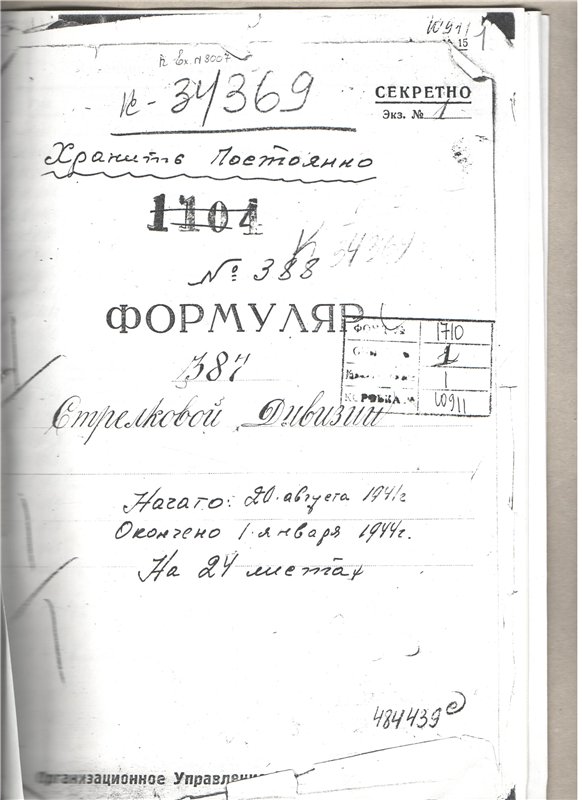 15 1
К Вх. N 8007
СЕКРЕТНО
к - 34369
Экз. № 1
Хранить Постоянно
1104
К 34369
№ 388
ФОРМУЛЯР
1710
387
1
1
КОРОБКА №
10911
Стрелковой Дивизии
Начато: 20 августа 1941г
Окончено 1 января 1944г.
На 24 листах
484439
Организационное Управление